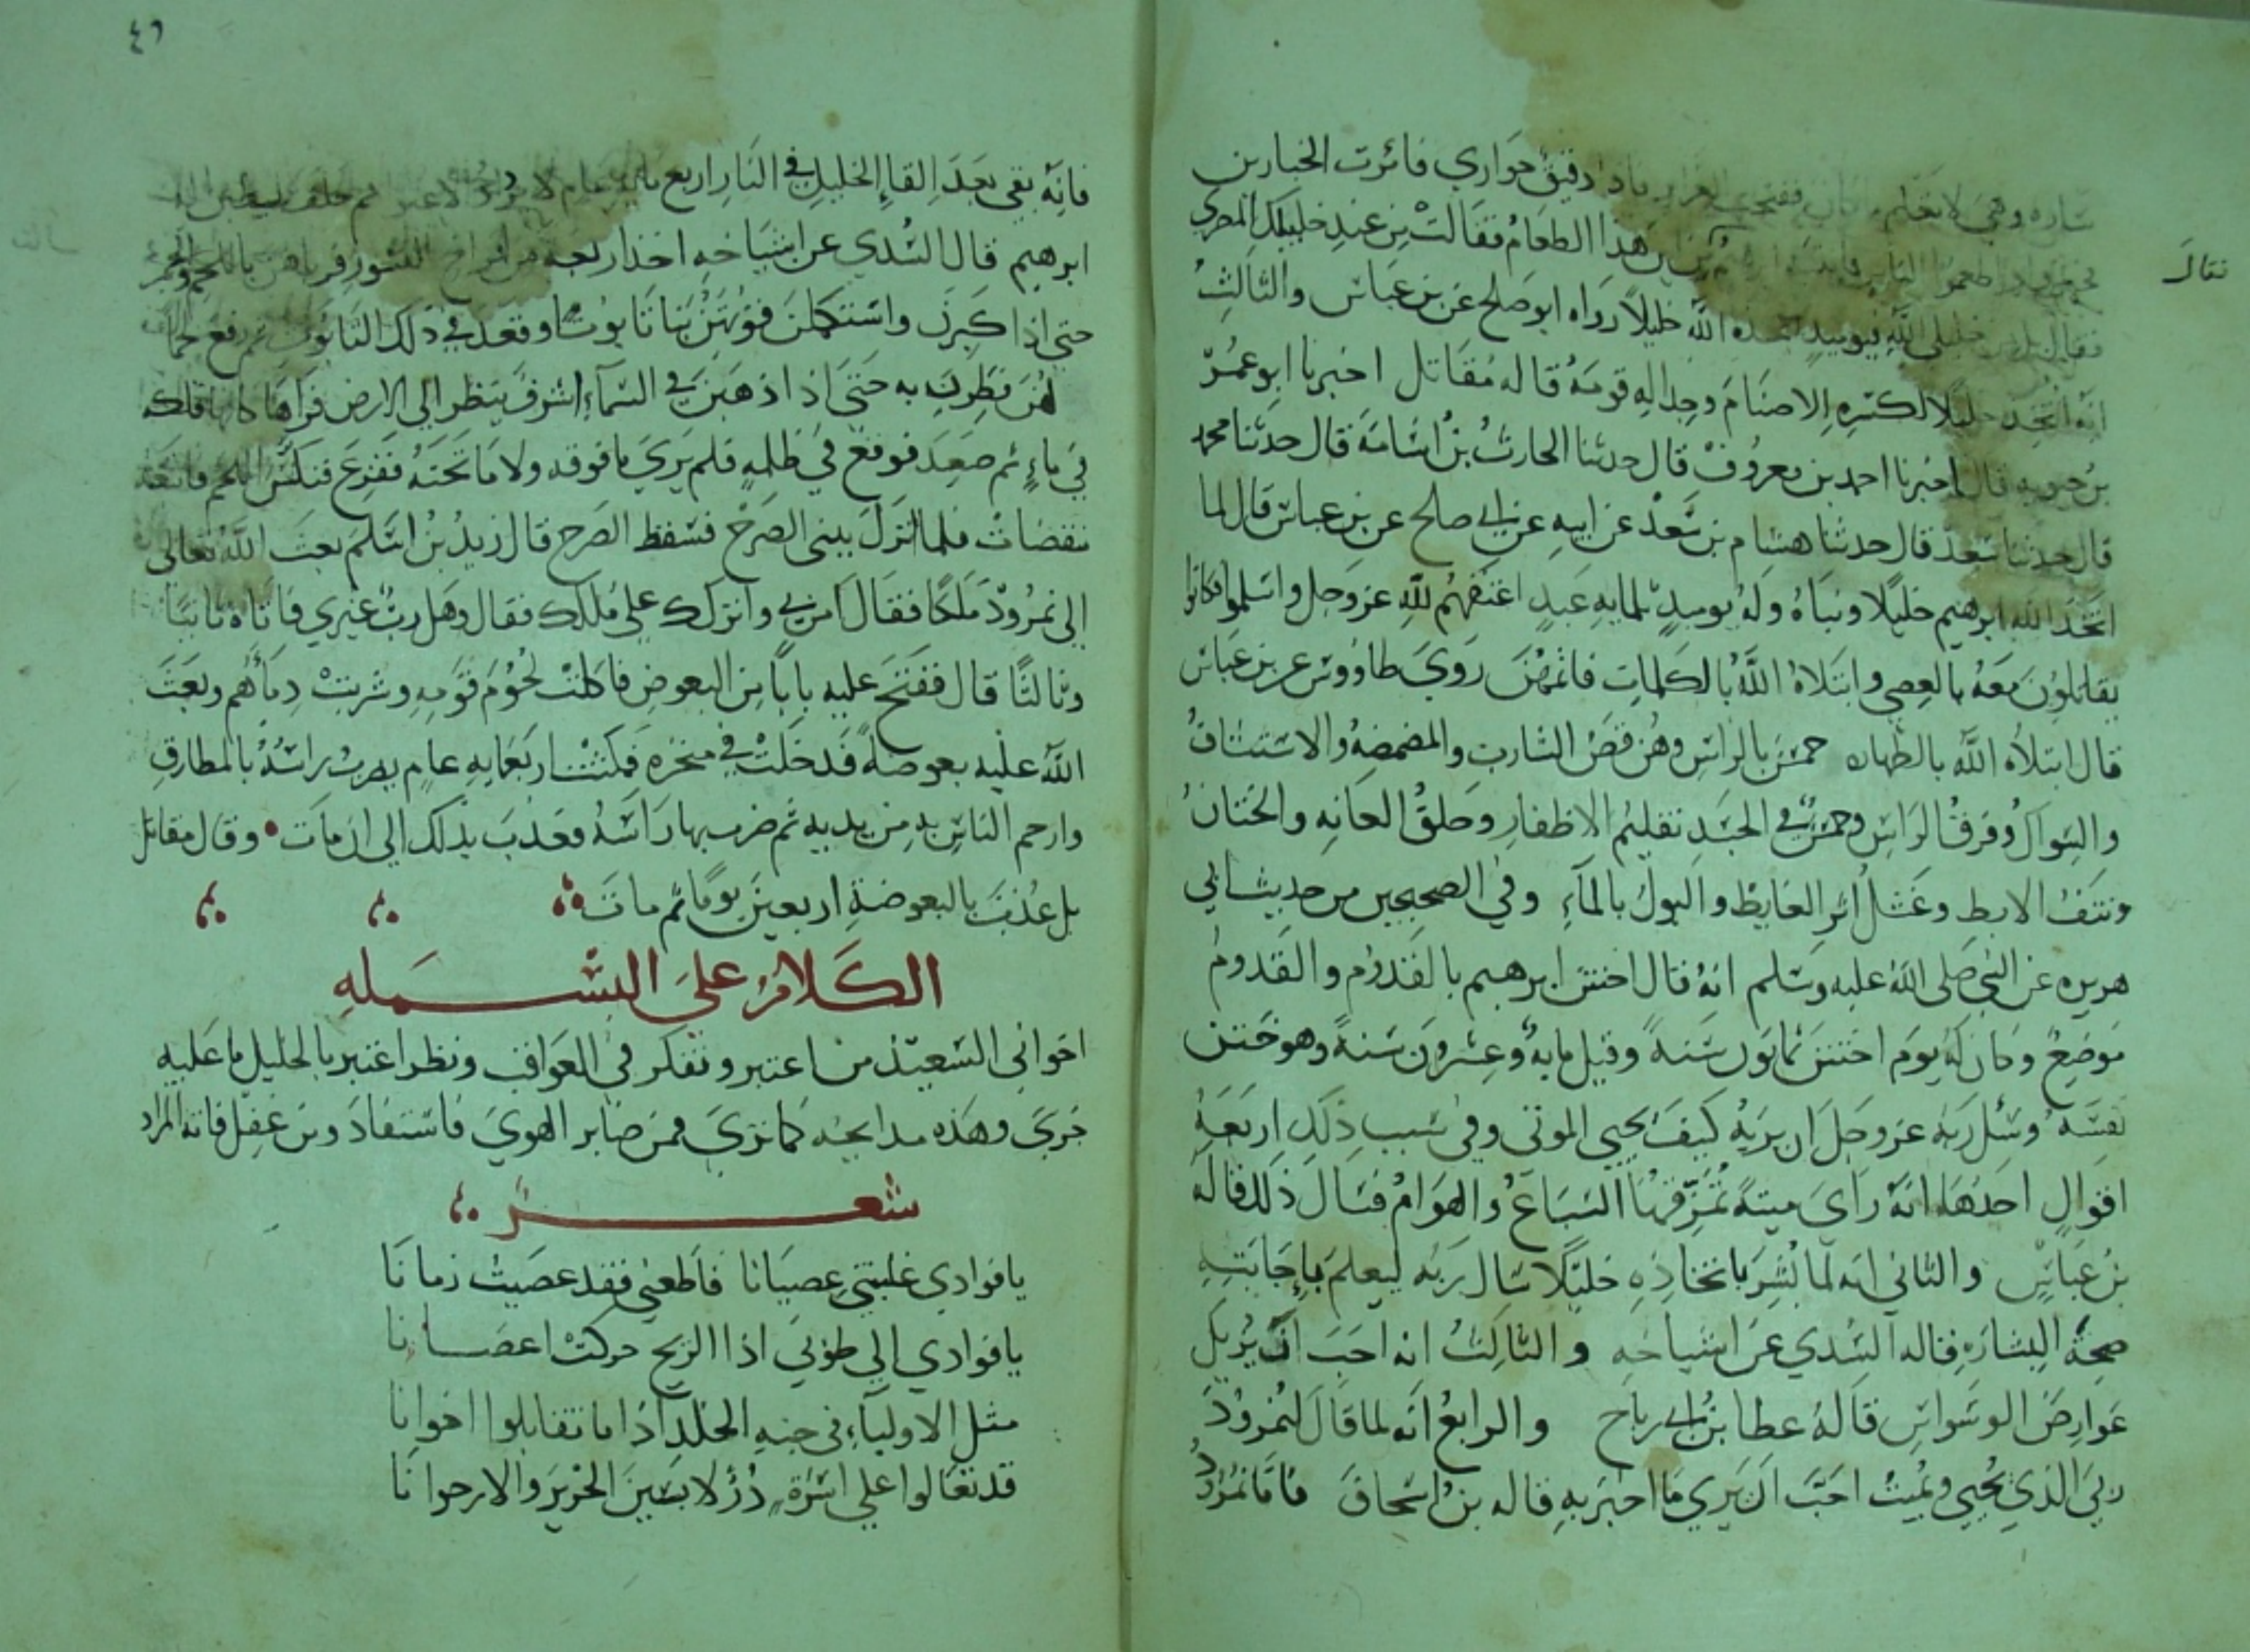 ساره وهي لا تعلم ففتحت الغراير فاذا دقيق حواري فامرت الخبازين
هذا الطعام فقالت من عند خليلك المصري
فقال خليلي الله فيوميذ اتخذه الله خليلا رواه ابو صلح عن بن عباس والثالث
انه اتخذ خليلا لكسره الاصنام وجداله قومه قاله مقاتل اخبرنا ابو عمر
بن حيويه قال اخبرنا احمد بن معروف قال حدثنا الحارث بن اسامة قال حدثنا محمد
قال حدثنا سعد قال حدثنا هشام بن سعد عن ابيه عن ابي صلح عن بن عباس قال لما
اتخذ الله ابرهيم خليلا ونباه وله يوميذ ثلمايه عبد اعتقهم لله عز وجل واسلموا فكانوا
يقاتلون معه بالعصي وابتلاه الله بالكلمات فاتمهن روي طاووس عن بن عباس
قال ابتلاه الله بالطهاره خمس بالراس وهن قص الشارب والمضمضه والاستنشاق
والسواك وفرق الراس وخمس في الجسد تقليم الاظفار وحلق العانه والختان
ونتف الابط وغسل اثر الغايط والبول بالماء وفي الصحيحين من حديث ابي
هريره عن النبي صلى الله عليه وسلم انه قال اختتن ابرهيم بالقدوم والقدوم
موضع وكان له يوم اختتن ثمانون سنة وقيل مايه وعشرون سنة وهو ختن
نفسه وسئل ربه عز وجل ان يريه كيف يحيي الموتى وفي سبب ذلك اربعة
اقوال احدها انه راي ميتة تمزقها السباع والهوام فسال ذلك قاله
بن عباس والثاني انه لما بشر باتخاذه خليلا سال ربه ليعلم باجابته
صحة البشاره قاله السدي عن اشياخه والثالث انه احب ان يزيل
عوارض الوسواس قاله عطا بن ابي رباح والرابع انه لما قال لنمرود
ربي الذي يحيي ويميت احب ان يري ما اخبر به قاله بن اسحاق فاما نمرود
فقال
٤٦
فانه بقي بعد القاء الخليل في النار اربع ماية عام لا يزداد الا عتوا ثم حلف ليطلبن اله
ابرهيم قال السدي عن اشياخه اخذ اربعة من افراخ النسور فرباهن باللحم والخمر
حتى اذا كبرن واستكملن قوتهن بنا تابوتا وقعد في ذلك التابوت ثم رفع لحما
لهن فطرن به حتى اذا ذهبن في السماء اشرف ينظر الي الارض فراها كانها فلكه
في ماء ثم صعد فوقع في ظلمه فلم يري ما فوقه ولا ما تحته ففزع فنكس اللحم فاتبعته
منقضات فلما نزل يبني الصرح فسقط الصرح قال زيد بن اسلم بعث الله تعالى
الي نمرود ملكا فقال امن بي واتركك علي ملكك فقال وهل رب غيري فاتاه ثانيا
وثالثا قال ففتح عليه بابا من البعوض فاكلت لحوم قومه وشربت دماهم وبعث
الله عليه بعوضة فدخلت في منخره فمكثت اربعمايه عام يضرب راسه بالمطارق
وارحم الناس به من يديه ثم ضرب بها راسه فعذب بذلك الي ان مات وقال مقاتل
بل عذب بالبعوضة اربعين يوما ثم مات
الكلام على البسمله
اخواني السعيد من اعتبر وتفكر في العواقب ونظر اعتبر بالخليل ما عليه
جري وهذه مدايحه كما تري فمن صابر الهوي فاستفاد ومن غفل فاته المراد
شعر
يا فوادي غلبتني عصيانا فاطعني فقد عصيت زمانا
يا فوادي الي طوبي اذا الريح حركت اغصانا
مثل الاولياء في جنه الخلد اذا ما تقابلوا اخوانا
قد تعالوا علي اسرة در لابسين الحرير والارجوانا